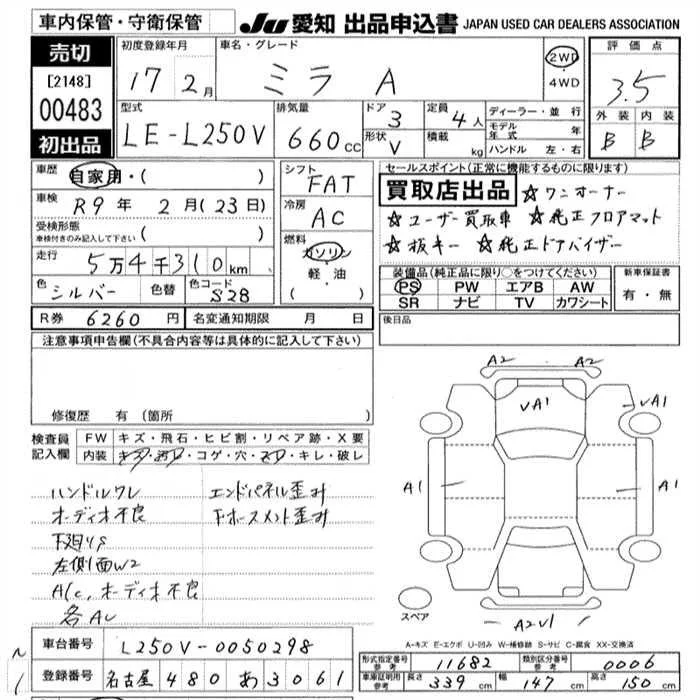 車内保管・守衛保管
JU 愛知 出品申込書 JAPAN USED CAR DEALERS ASSOCIATION
売切
[2148]
00483
初出品
初度登録年月
17 2月
車名・グレード
ミラ A
2WD・4WD
評価点
3.5
外装 内装
B B
型式
LE-L250V
排気量
660cc
ドア 3
定員 4人
形状 V
積載 kg
ディーラー・並行
モデル年式 年
ハンドル 左・右
車歴 自家用・( )
車検 R9年 2月(23日)
受検形態 車検付きのみ記入して下さい ( )
走行 5万4千310km
色 シルバー 色替 色コード S28
シフト FAT
冷房 AC
燃料 ガソリン
軽・油
( )
セールスポイント(正常に機能するものに限ります)
買取店出品 ☆ワンオーナー
☆ユーザー買取車 ☆純正フロアマット
☆抜キー ☆純正ドアバイザー
装備品(純正品に限り○をつけてください)
PS PW エアB AW
SR ナビ TV カワシート
新車保証書
有・無
R券 6260円 名変通知期限 月 日
後日品
注意事項申告欄(不具合内容等は具体的に記入して下さい)
修復歴 有 (箇所
検査員記入欄
FW キズ・飛石・ヒビ割・リペア跡・X要
内装 キズ・汚レ・コゲ・穴・スレ・キレ・破レ
ハンドルワレ エンドパネル歪み
オーディオ不良
下廻りS
左側面W2
A/C、オーディオ不良
A2 A2
VA1 VA1
A1 A1
スペア
A2V1
A-キズ E-エクボ U-凹み W-補修跡 S-サビ C-腐食 XX-交換済
車台番号 L250V-0050298
登録番号 名古屋 480 あ 3061
形式指定番号 参考 11682
類別区分番号 参考 0006
車庫証明用参考 長さ 339cm 幅 147cm 高さ 150cm